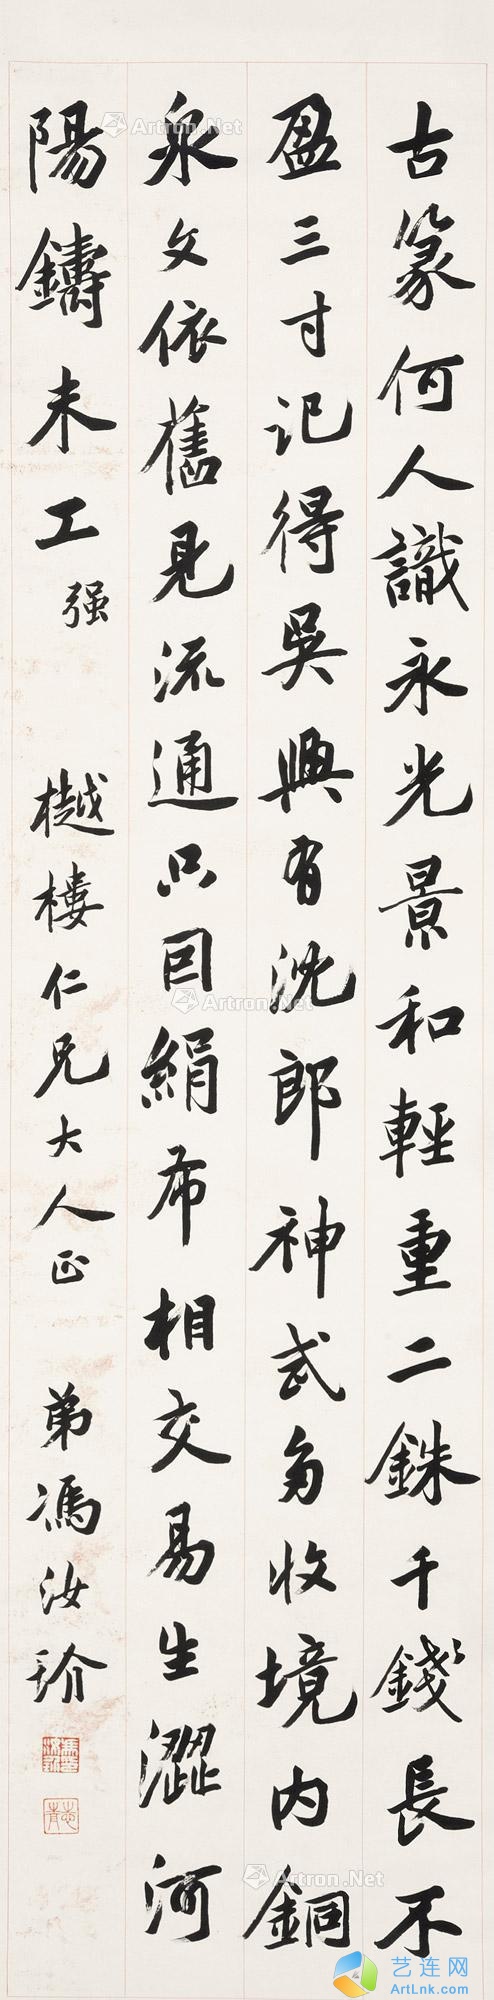 古篆何人識永光景和輕重二銖千錢長不
盈三寸記得吳興有沈郎神武多收境内銅
泉文依舊見流通只因絹布相交易生澀河
陽鑄未工强
樾樓仁兄大人正
弟馮汝玠
Artron.Net
Artron.Net
Artron.Net
艺连网
ArtLnk.com